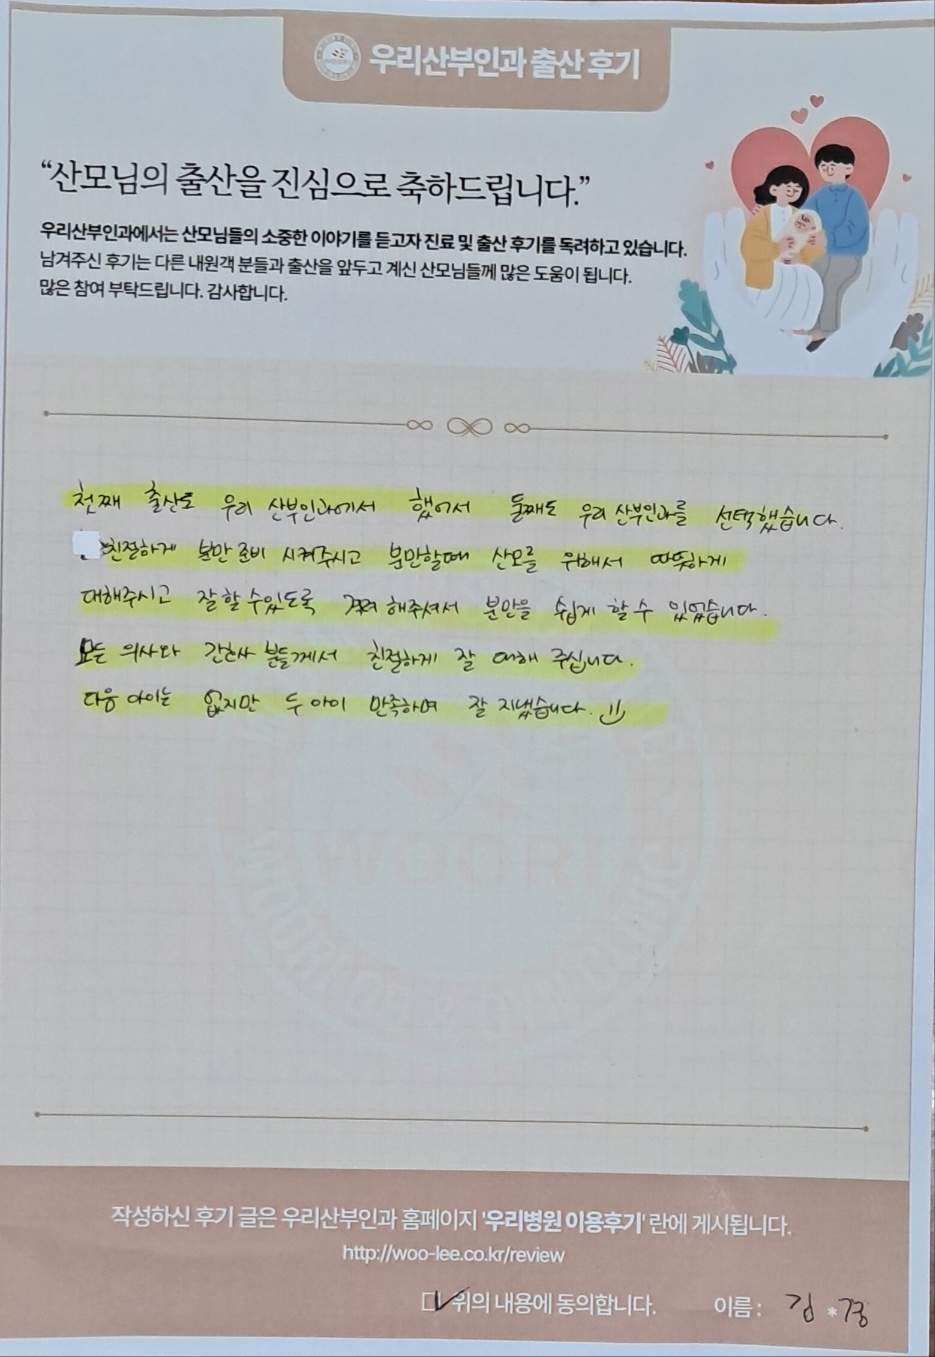 우리산부인과 출산 후기
“산모님의 출산을 진심으로 축하드립니다.”
우리산부인과에서는 산모님들의 소중한 이야기를 듣고자 진료 및 출산 후기를 독려하고 있습니다.
남겨주신 후기는 다른 내원객 분들과 출산을 앞두고 계신 산모님들께 많은 도움이 됩니다.
많은 참여 부탁드립니다. 감사합니다.
첫째 출산도 우리 산부인과에서 했어서 둘째도 우리 산부인과를 선택했습니다.
친절하게 분만 준비 시켜주시고 분만할때 산모를 위해서 따뜻하게
대해주시고 잘 할 수 있도록 해주셔서 분만을 쉽게 할 수 있었습니다.
모든 의사와 간호사 분들께서 친절하게 잘 대해 주십니다.
다음 아이는 없지만 두 아이 만족하며 잘 지냈습니다.
WOORI
WOORI OB & GYN CLINIC
작성하신 후기 글은 우리산부인과 홈페이지 '우리병원 이용후기' 란에 게시됩니다.
http://woo-lee.co.kr/review
위의 내용에 동의합니다. 이름 : 김 * 경